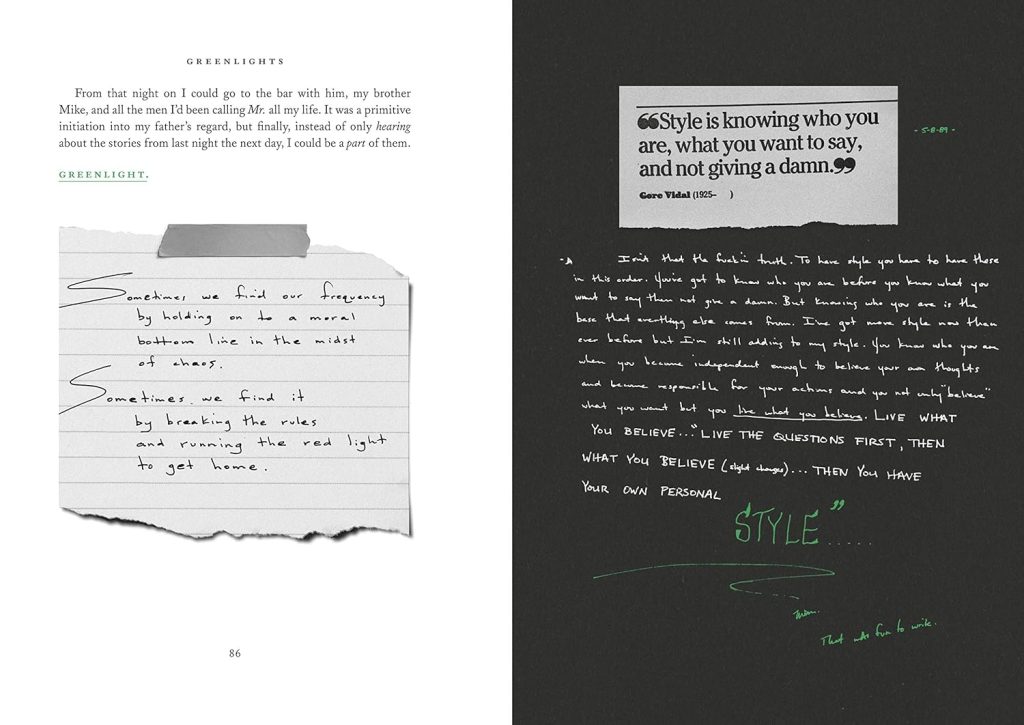 GREENLIGHTS
From that night on I could go to the bar with him, my brother
Mike, and all the men I'd been calling Mr. all my life. It was a primitive
initiation into my father's regard, but finally, instead of only hearing
about the stories from last night the next day, I could be a part of them.
GREENLIGHT.
Sometimes we find our frequency
by holding on to a moral
bottom line in the midst
of chaos.
Sometimes we find it
by breaking the rules
and running the red light
to get home.
86
❝Style is knowing who you
are, what you want to say,
and not giving a damn.❞
Gore Vidal (1925– )
- 5-8-89 -
Isn't that the fuckin truth. To have style you have to have these
in this order. You've got to know who you are before you know what you
want to say then not give a damn. But knowing who you are is the
base that everything else comes from. I've got more style now than
ever before but I'm still adding to my style. You know who you are
when you become independent enough to believe your own thoughts
and become responsible for your actions and you not only "believe"
what you want but you live what you believe. LIVE WHAT
YOU BELIEVE..." LIVE THE QUESTIONS FIRST, THEN
WHAT YOU BELIEVE (slight changes)... THEN YOU HAVE
YOUR OWN PERSONAL
STYLE".....
That was fun to write.